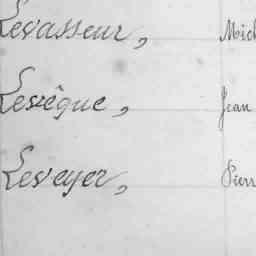 Levasseur, Mich
Levêque, Jean
Leveyer, Pierr